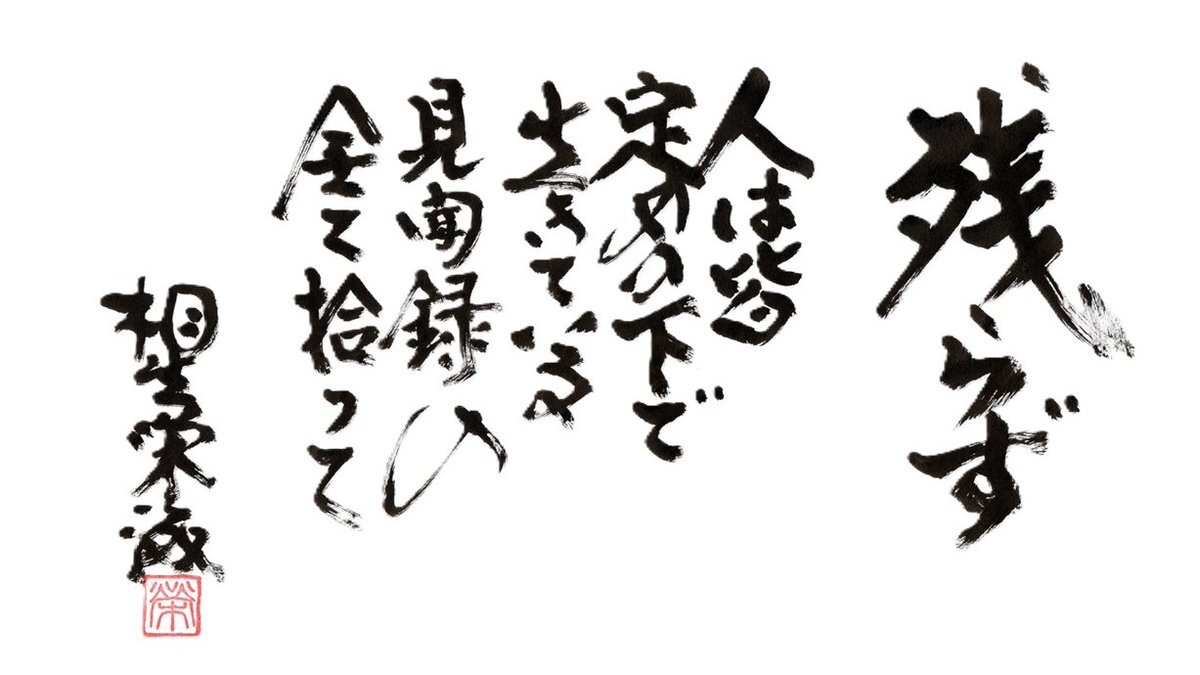 残らず
人は皆
定めの下で
生きている
見聞録の
全て拾って
相生栄
榮